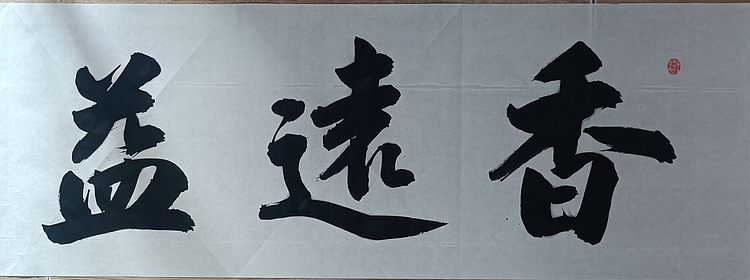 香遠益